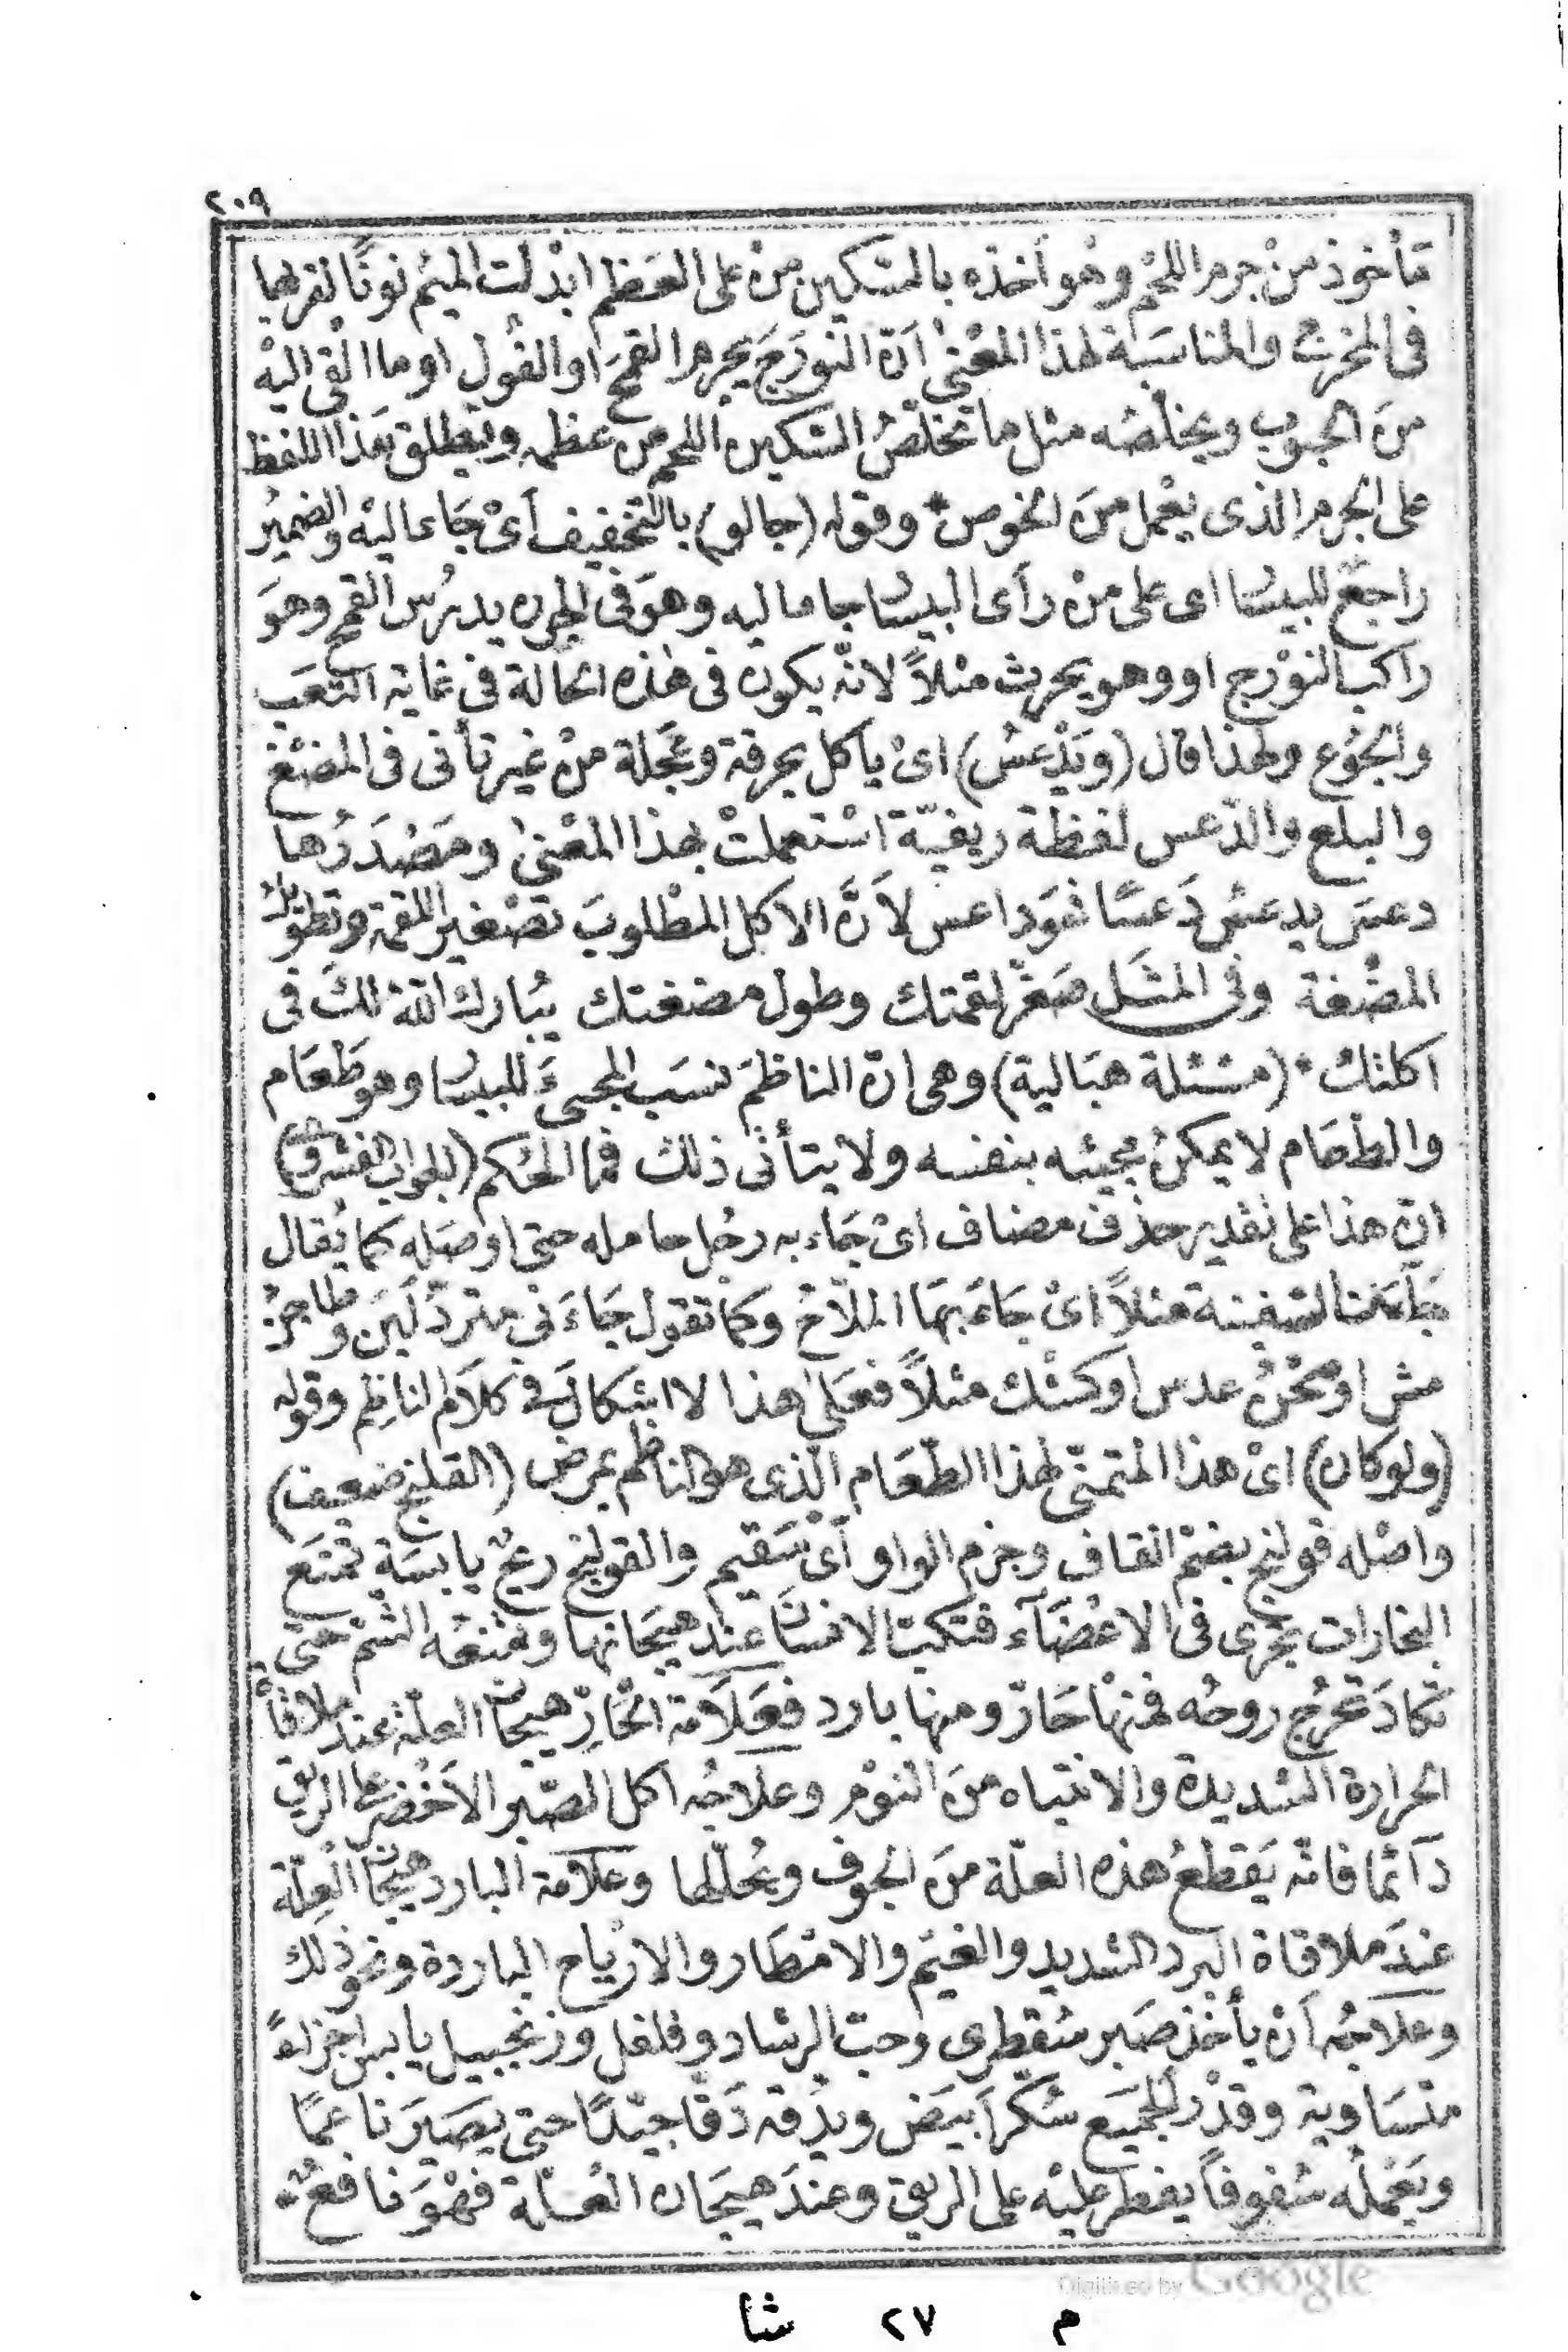 ٢٠٩
مأخوذ منْ جرم اللحْم وهُو أخذه بالسّكين منْ على العَظم ابْدلت الميْم نونًا لقربها
فى المخرج والمناسَبة لهذا المعْنىٰ اَنّ النّورَجَ يجرم القمْحَ او الفُول او ما اُلقى اليْه
منَ الحبوب ويخلّصُه مثل ما تخلّصُ السّكين اللحم من عظمه ويُطلق هَذا اللفظ
على الجرم الذى يعْمل منَ الخوص * وقوله (جالو) بالتّخفيف اَىْ جَاء اليْه والضميرُ
راجعٌ للبيسار اى على منْ رأى البيسار جاءاليه وهوَ فى الجرن يدرُس القمح وهوَ
راكب النّوْرج او وهو يحرث مثلاً لانّه يكون فى هٰذه الحالة فى غاية التّعَب
والجُوع ولهذا قال (وَيَدْعسُ) اىْ يأكل بحرقة وعَجلة منْ غير تأنى فى المضْغ
والبلع والدّعس لفظة ريفيّة اسْتعملتْ بهذا المعْنىٰ ومَصْدَرُها
دعسَ يدعسُ دَعسًا فهَو داعس لاَنَّ الاكل المطْلوبَ تصْغير اللقمة وتطويلُ
المضْغة وفى المثَل صَغّر لقمتك وطول مضغتك يبُارك اللّه لكَ فى
اكلتكْ * (مسْئلة هبَالية) وهى انّ الناظمَ نسَب المجىءَ للبيسار وهو طَعَام
والطعَام لا يمكنُ مجيئه بنفسه ولا يتأتى ذلك فما الحكم (الجواب الفشروى)
انّ هذا على تقدير حذف مضاف اىْ جَاء به رجُل حامله حتى اوصَله كما يُقال
جَاءتنا السّفينة مثلاً اىْ جَاءَ بهَا الملّاحُ وكما تقول جَاءَنى مترد لَبَن وطاجِنُ
مش او صَحْنُ عدس او كشْك مثلاً فعَلىٰ هذا لا اشكالَ فى كلاَم الناظِم وقوله
(ولوكان) اىْ هذا المتمنّى لهذا الطّعَام الّذى هو الناظم بمرض (القلنج ضعيف)
واصْله قولنج بضمْ القاف وجزم الواو اَىْ سَقيم والقولنج ريحٌ يابسَة تمنَع
البخارات تجرى فى الاعْضَآء فتكبّ الانسَانَ عند هيجَانها وتمْنعُه الشّمّ حتى
تكادَ تخرُج روحُه فمنهْا حَارّ ومنها بارد فعَلاَمة الحَارّ هيجَان العلّة عند ملاقاة
الحرارة الشّديدة والانتباه منَ النّوْم وعلاجُه اكل الصّبر الاَخْضر على الريق
دَآئمًا فانّه يَقطعُ هذه العلّة منَ الجوف ويُحلّلها وعَلامة البارد هيجَان العِلّة
عندَ ملاقاة البرد الشّديد والغيْم والامْطَار والارْياح الباردة ونحو ذلك
وعلاجُه اَنْ يأخذ صَبر سُقطرى وحبّ الرشاد وفلفل وزنجبيل يابس اجزاءً
متسَاوية وقدْر الجميَع سُكّر اَبيَض ويدُقه دَقًا جيّدًا حتى يصَيرَ ناعمًا
ويَعْملُه سُفوفاً يفطر عليْه على الريق وعندَ هيجَان العْلّة فهْوَ نافعٌ *
م ٢٧ شا
Digitized by Google